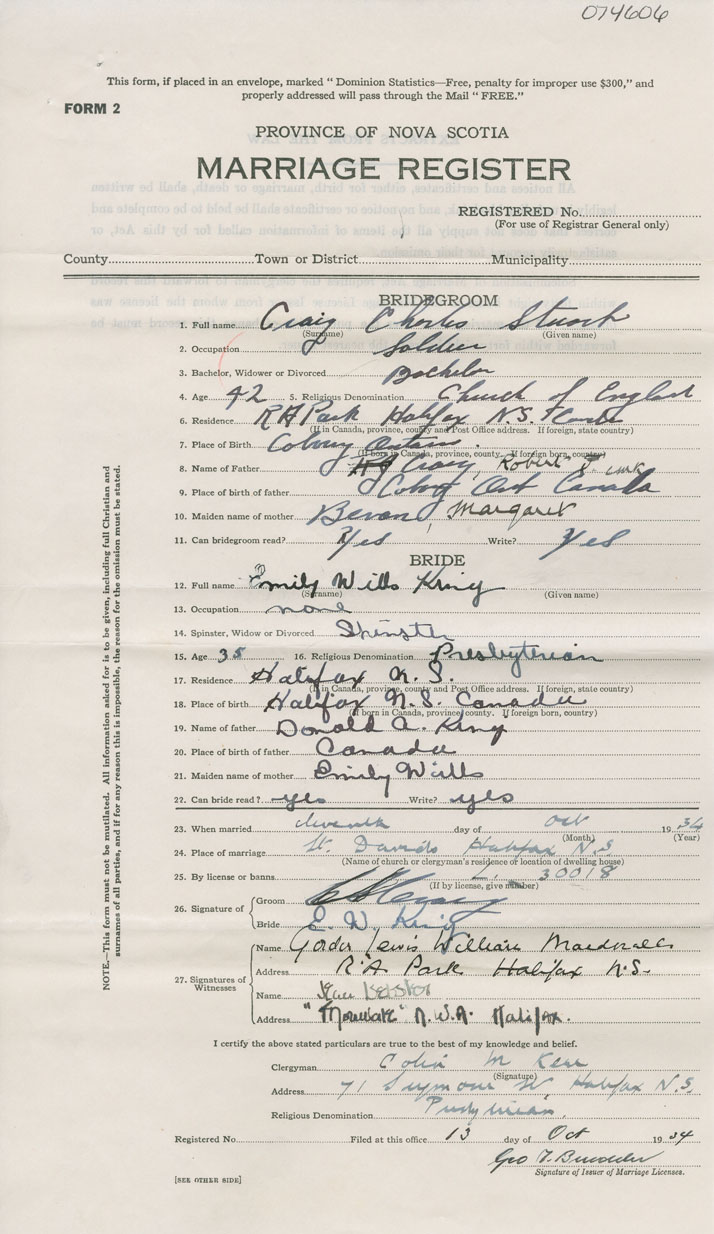 074606
This form, if placed in an envelope, marked “ Dominion Statistics—Free, penalty for improper use $300,” and
properly addressed will pass through the Mail “ FREE.”
FORM 2
PROVINCE OF NOVA SCOTIA
MARRIAGE REGISTER
REGISTERED No.
(For use of Registrar General only)
County Town or District Municipality
BRIDEGROOM
1. Full name Craig Charles Stuart
(Surname) (Given name)
2. Occupation Soldier
3. Bachelor, Widower or Divorced Bachelor
4. Age 42 5. Religious Denomination Church of England
6. Residence R A Park Halifax N.S.
(If in Canada, province, county and Post Office address. If foreign, state country)
7. Place of Birth Ontario.
(If born in Canada, province, county. If foreign born, country)
8. Name of Father Craig, Robert
9. Place of birth of father Ont Canada
10. Maiden name of mother Bevan, Margaret
11. Can bridegroom read? Yes Write? Yes
BRIDE
12. Full name Emily Wills King
(Surname) (Given name)
13. Occupation none
14. Spinster, Widow or Divorced Spinster
15. Age 35 16. Religious Denomination Presbyterian
17. Residence Halifax N.S.
(If in Canada, province, county and Post Office address. If foreign, state country)
18. Place of Birth Halifax N.S. Canada
(If born in Canada, province, county. If foreign born, country)
19. Name of father Donald A. King
20. Place of birth of father Canada
21. Maiden name of mother Emily Wills
22. Can bride read? yes Write? yes
23. When married day of Oct 1934
(Month) (Year)
24. Place of marriage St. Davids Halifax N.S
(Name of church or clergyman's residence or location of dwelling house)
25. By license or banns L. 30018
(If by license, give number)
26. Signature of
Groom
Bride E. W. King
27. Signatures of
Witnesses
Name Gordon Lewis William
Address R.A Park Halifax N.S.
Name
Address N.W.A. Halifax.
I certify the above stated particulars are true to the best of my knowledge and belief.
Clergyman Colin M Kerr
(Signature)
Address 71 Seymour St Halifax N.S.
Religious Denomination Presbyterian
Registered No. Filed at this office 13 day of Oct 1934
Geo
Signature of Issuer of Marriage Licenses.
[SEE OTHER SIDE]
NOTE.—This form must not be mutilated. All information asked for is to be given, including full Christian and
surnames of all parties, and if for any reason this is impossible, the reason for the omission must be stated.